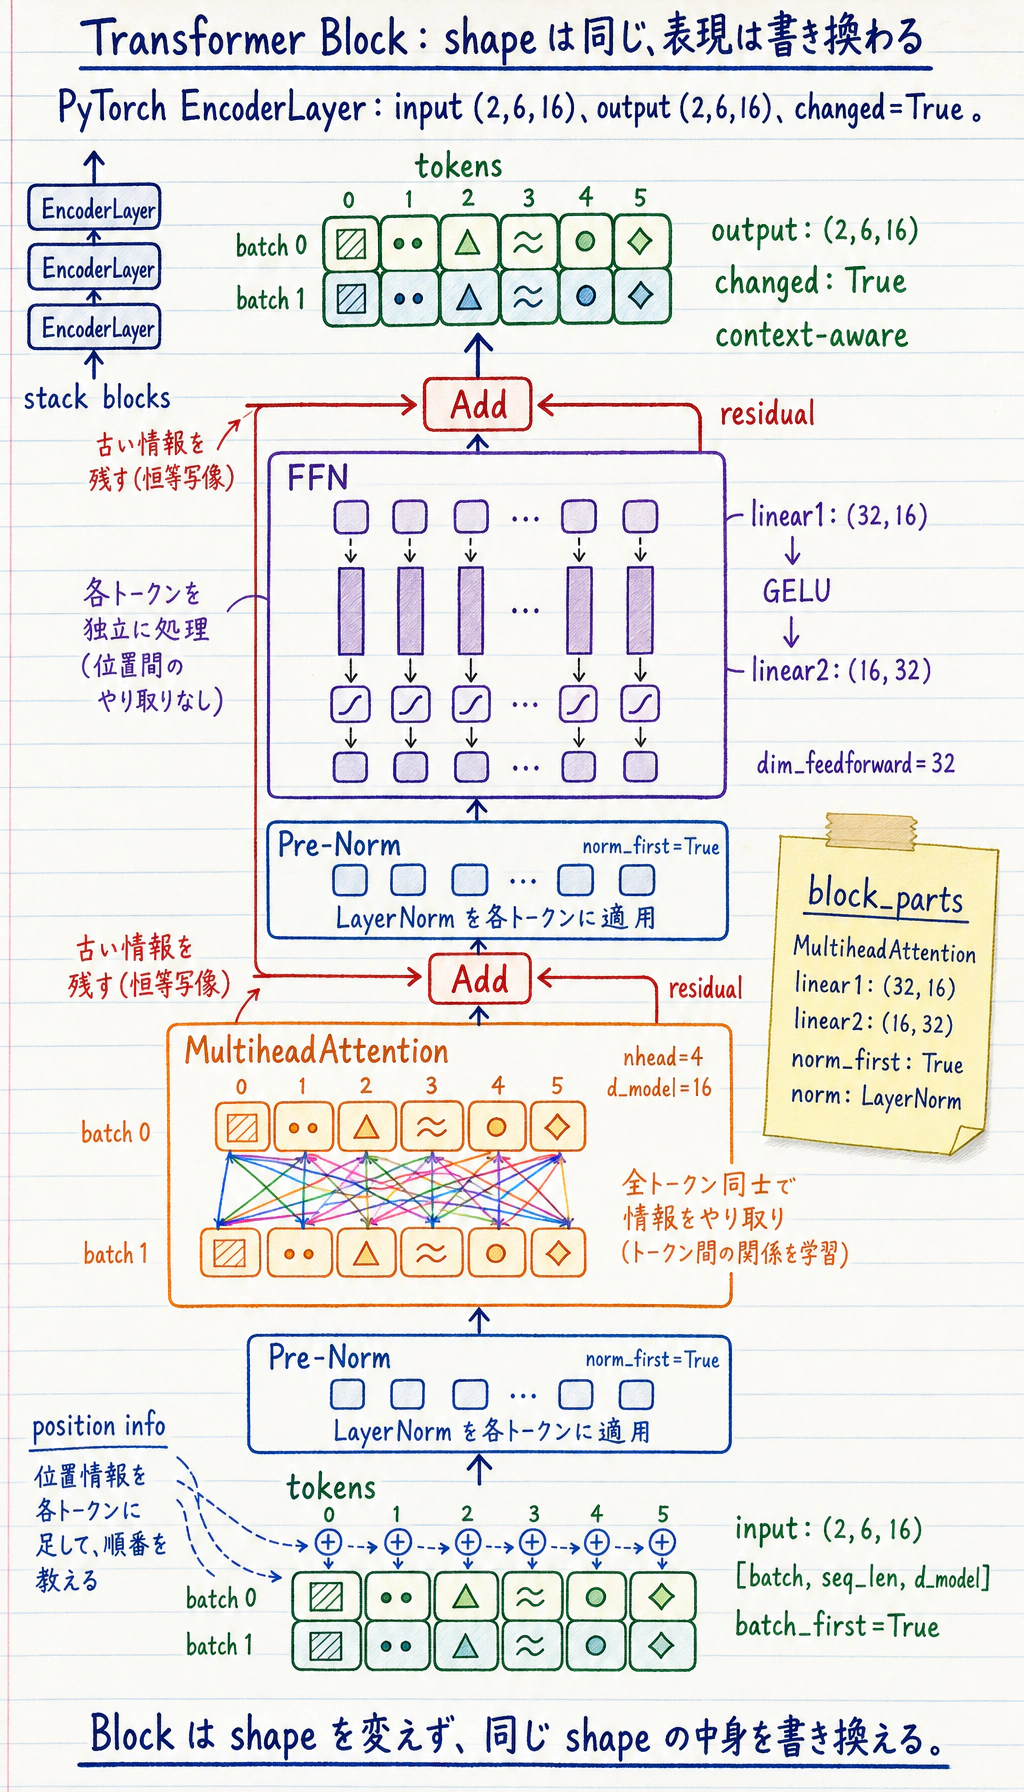 Transformer Block : shape は同じ、表現は書き換わる
PyTorch EncoderLayer : input (2,6,16)、output (2,6,16)、changed=True。
EncoderLayer
EncoderLayer
EncoderLayer
stack blocks
tokens
0 1 2 3 4 5
batch 0
batch 1
output : (2,6,16)
changed : True
context-aware
Add
residual
古い情報を
残す(恒等写像)
FFN
...
...
...
...
各トークンを
独立に処理
(位置間の
やり取りなし)
linear1 : (32,16)
GELU
linear2 : (16,32)
dim_feedforward=32
Pre-Norm
norm_first=True
...
LayerNorm を各トークンに適用
block_parts
MultiheadAttention
linear1 : (32,16)
linear2 : (16,32)
norm_first : True
norm : LayerNorm
古い情報を
残す(恒等写像)
Add
residual
MultiheadAttention
nhead=4
d_model=16
0 1 2 3 4 5
batch 0
batch 1
全トークン同士で
情報をやり取り
(トークン間の関係を学習)
Pre-Norm
norm_first=True
...
LayerNorm を各トークンに適用
position info
位置情報を
各トークンに
足して、順番を
教える
tokens
0 1 2 3 4 5
batch 0
batch 1
input : (2,6,16)
[batch, seq_len, d_model]
batch_first=True
Block は shape を変えず、同じ shape の中身を書き換える。